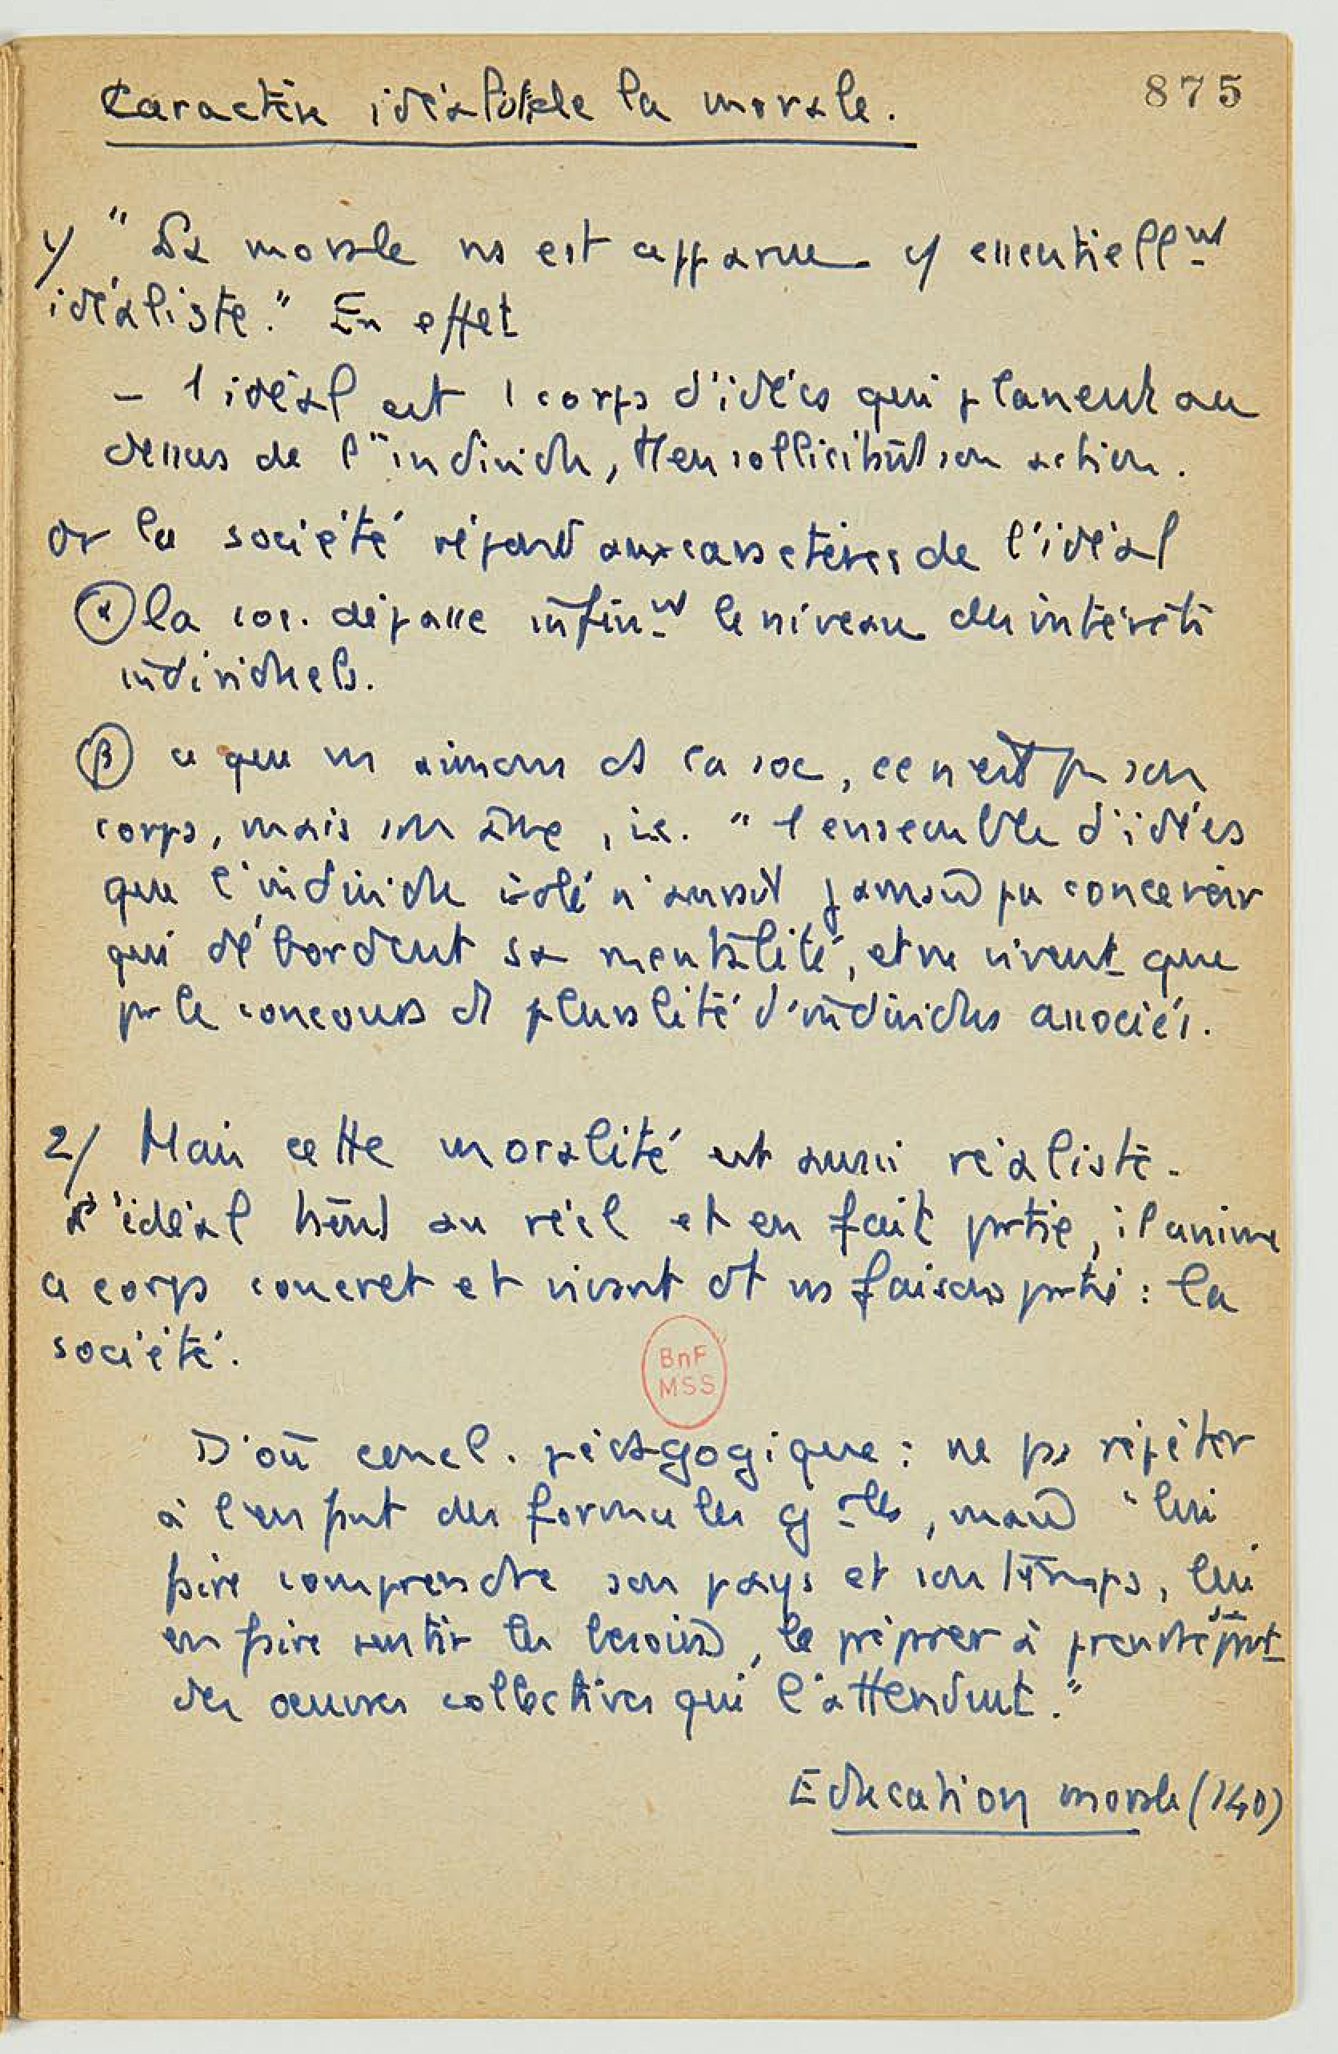 Caractère idéaliste de la morale.
875
1/ "La morale ns est apparue c/ essentiellnt
idéaliste." En effet
- 1 idéal est 1 corps d'idées qui planent au
dessus de l'individu, tt en sollicitant son action.
or la société répond aux caractères de l'idéal
α la soc. dépasse infinnt le niveau des intérêts
individuels.
β ce que ns aimons ds la soc, ce n'est pas son
corps, mais son âme, i.e. "l'ensemble d'idées
que l'individu isolé n'aurait jamais pu concevoir
qui débordent sa mentalité, et ne vivent que
pr le concours d1 pluralité d'individus associés.
2/ Mais cette moralité est aussi réaliste.
L'idéal tient au réel et en fait partie, il anime
ce corps concret et vivant dt ns faisons partie : la
société.
BnF
MSS
D'où concl. pédagogique : ne ps répéter
à l'enfant des formules gales, mais "lui
faire comprendre son pays et son temps, lui
en faire sentir les besoins, le préparer à prendre sa part
des œuvres collectives qui l'attendent."
Education morale (140)